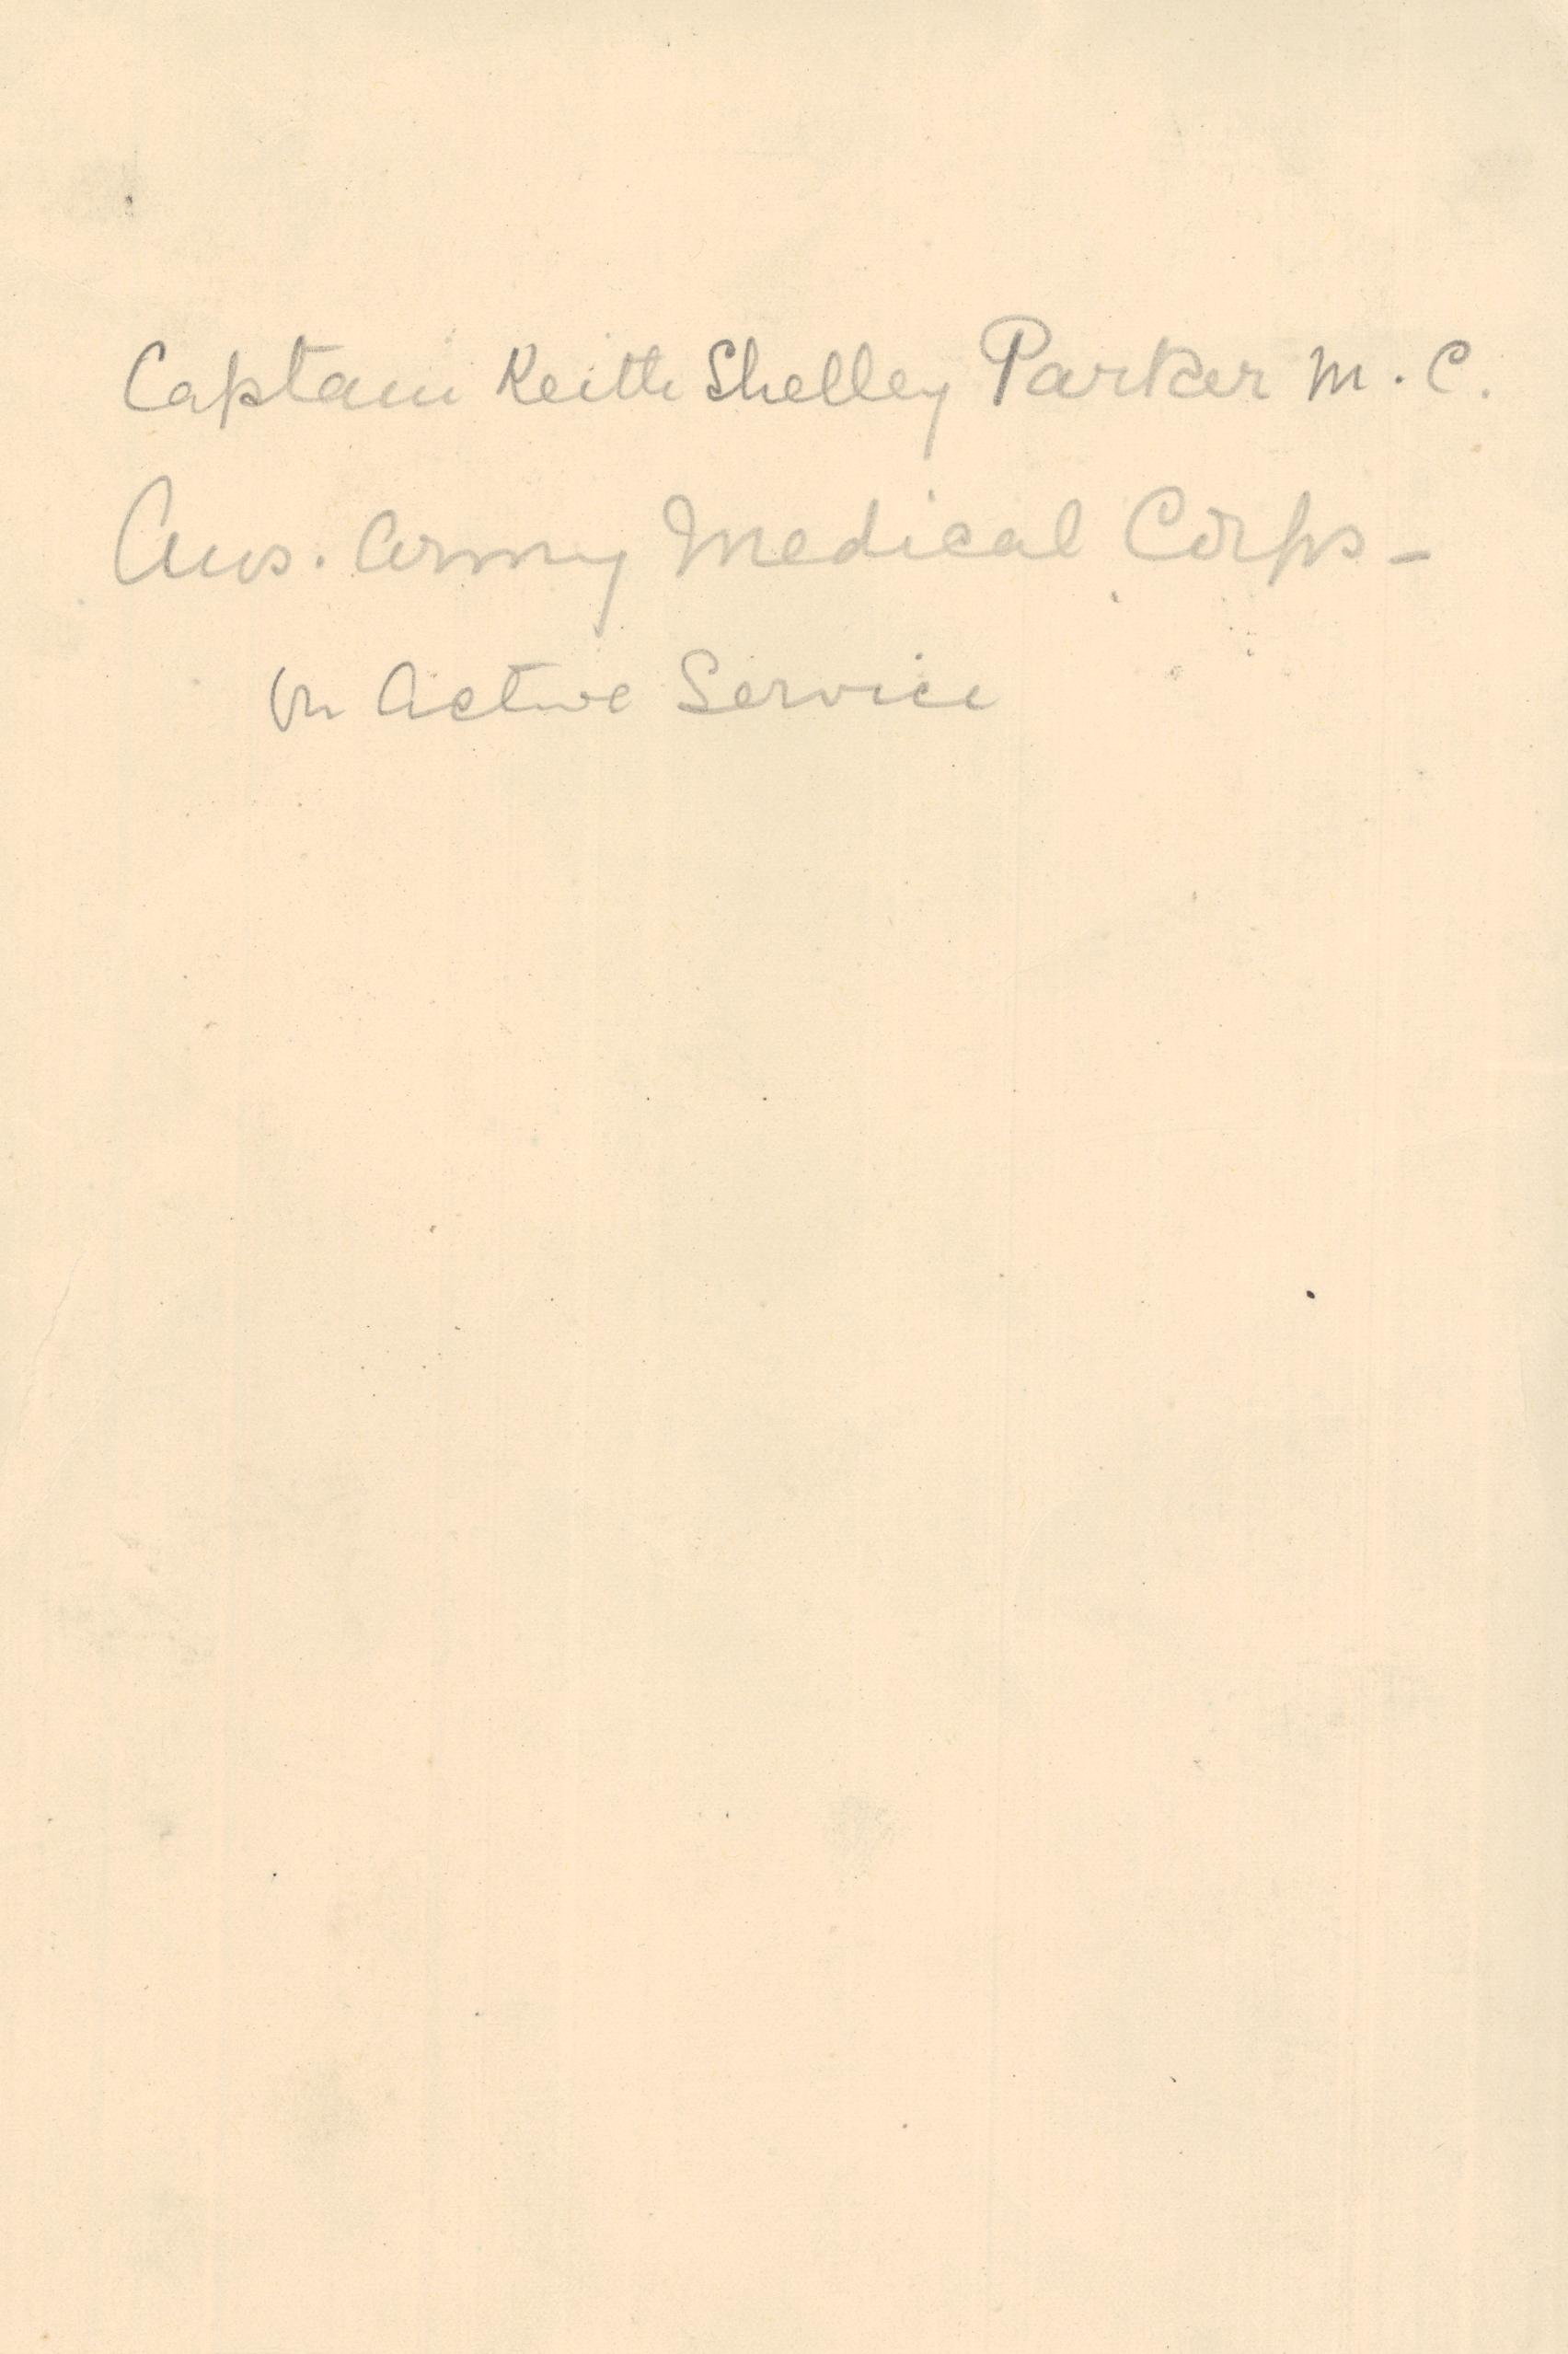 Captain Keith Shelley Parker M.C.
Aus. Army Medical Corps -
on Active Service